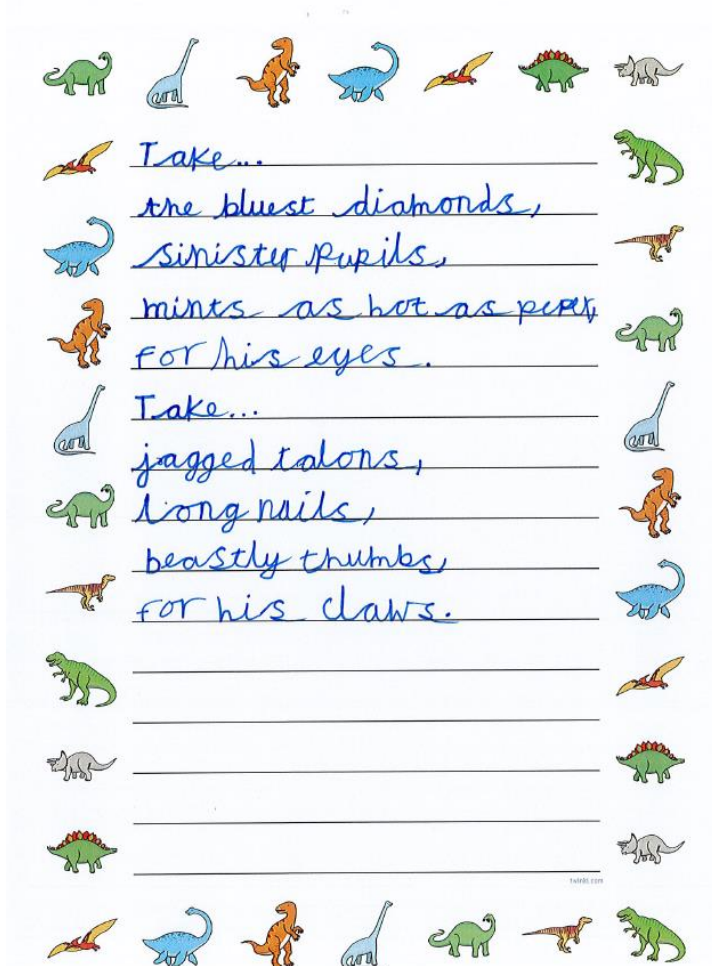 Take...
the bluest diamonds,
sinister pupils,
mints as hot as
for his eyes.
Take...
jagged talons,
long nails,
beastly thumbs,
for his claws.
twinkl.com